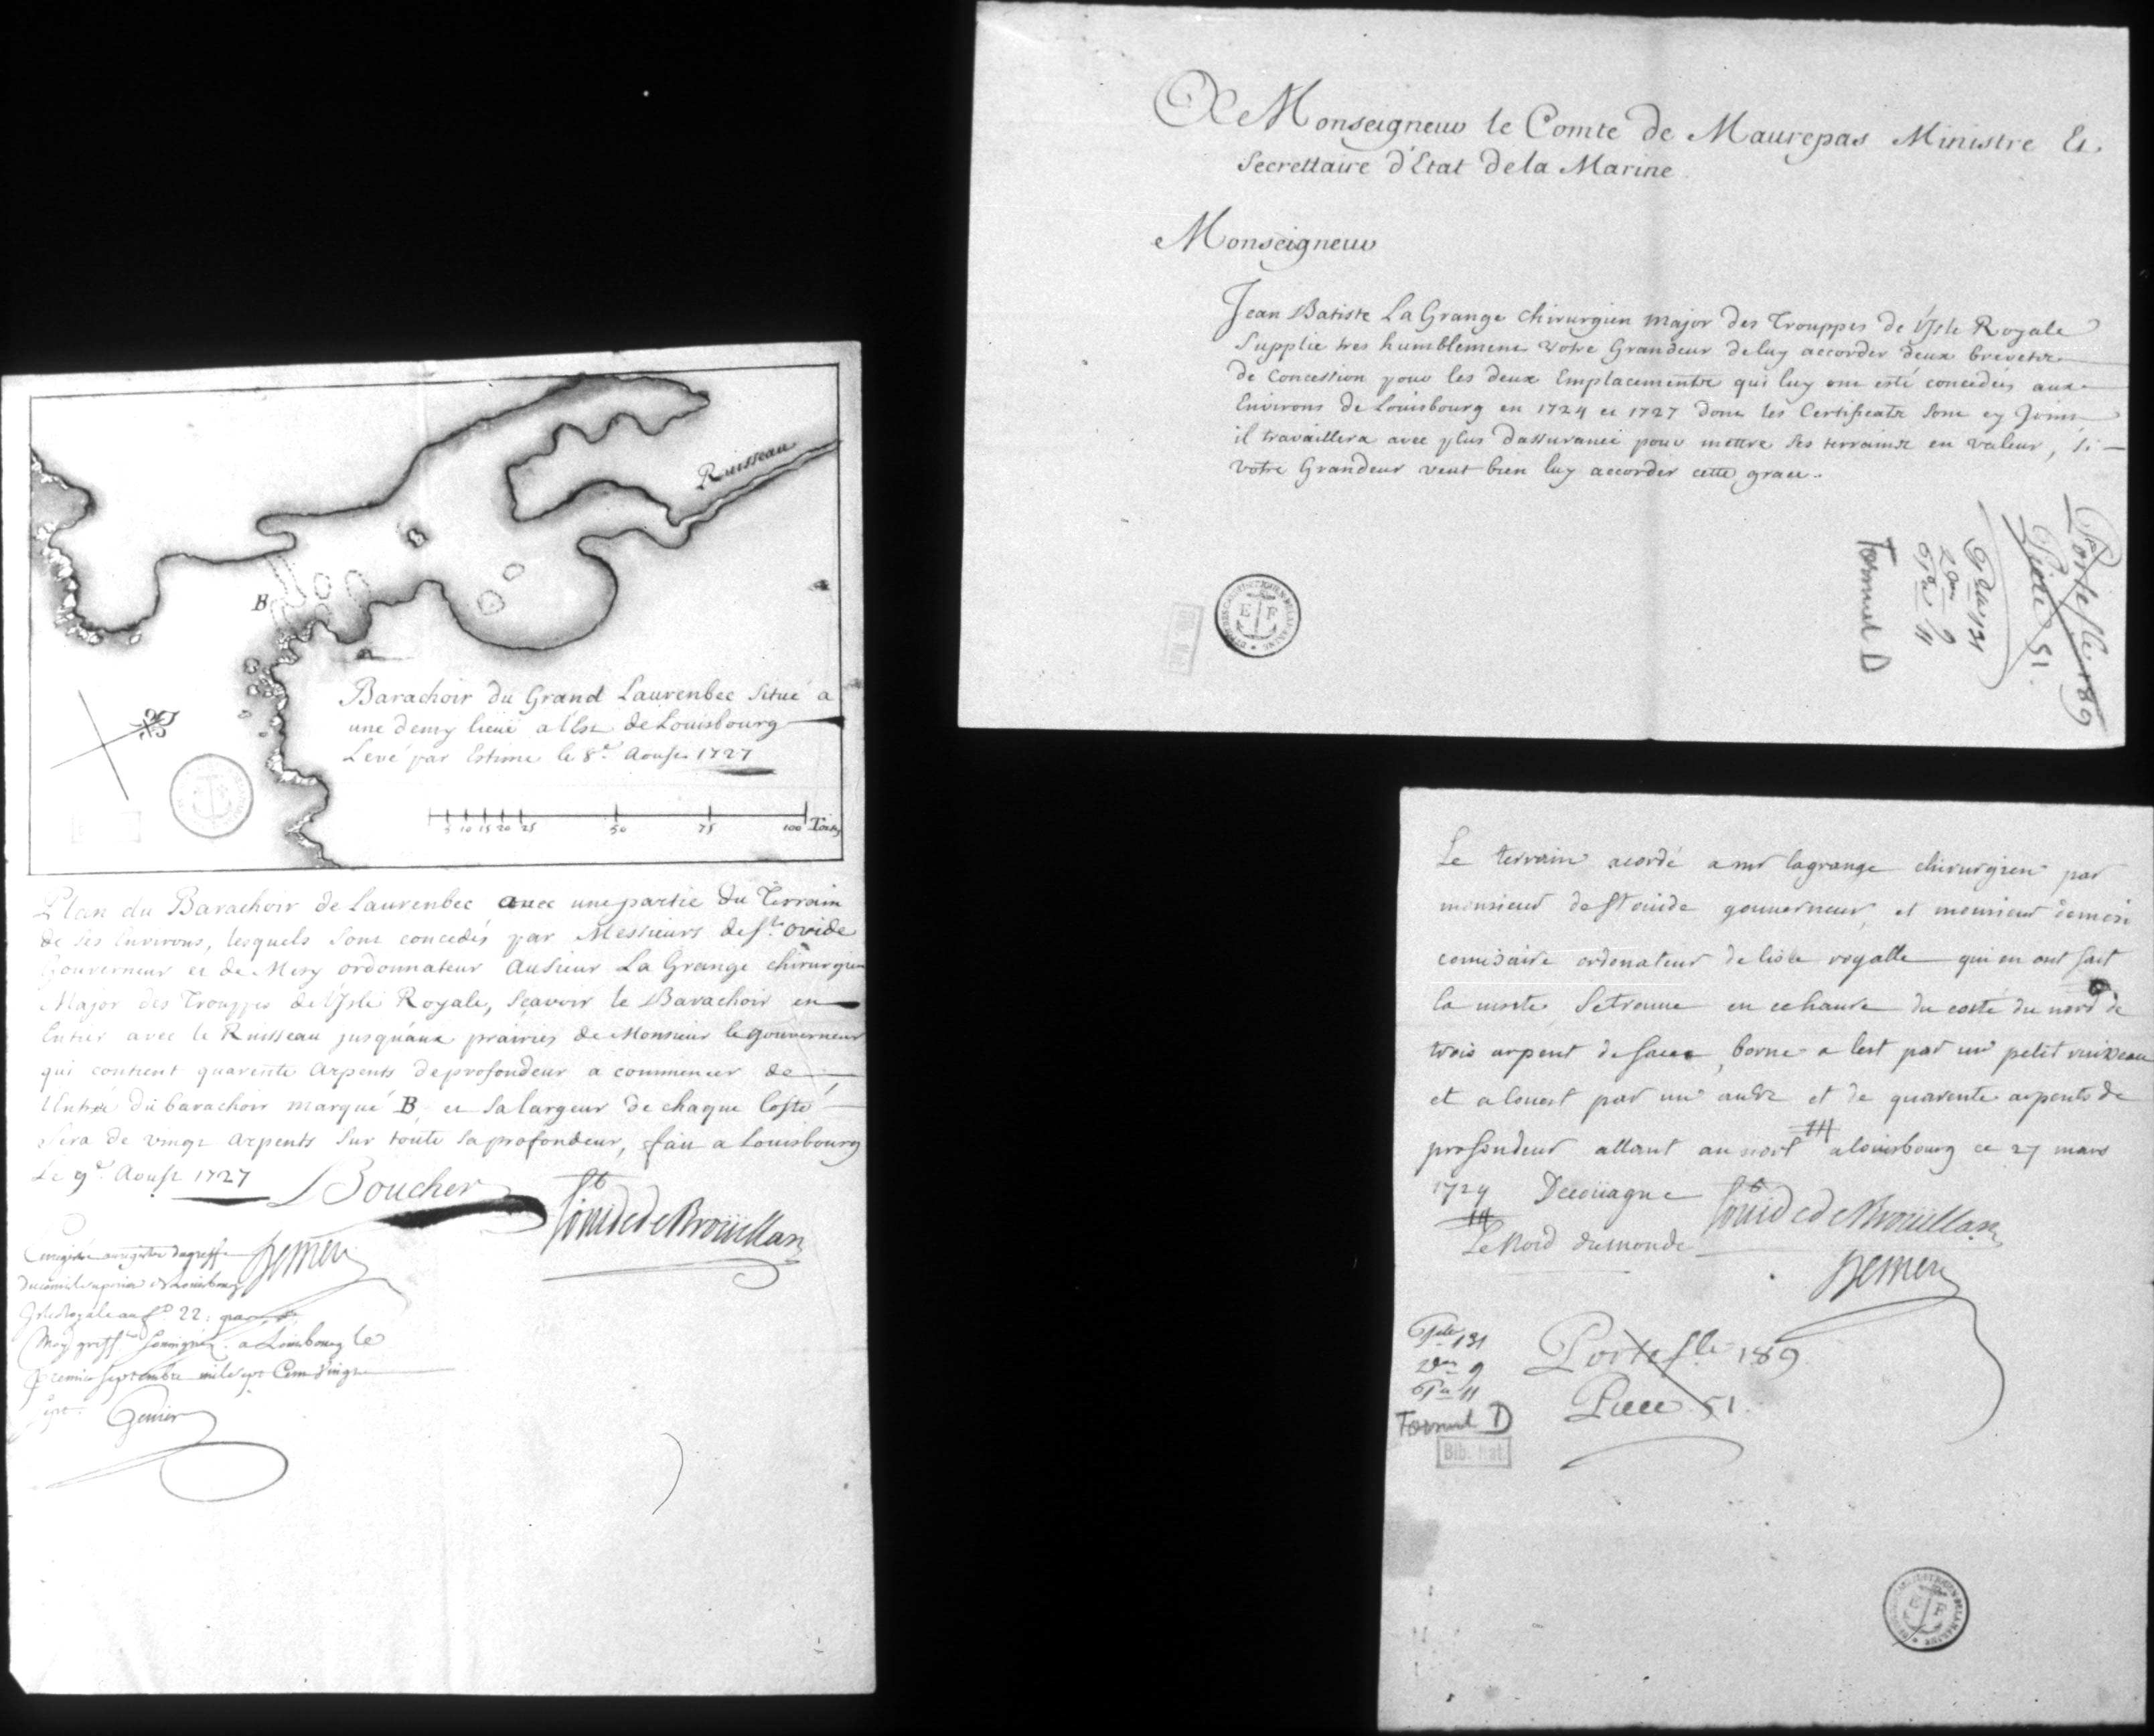 Ruisseau
B
Barachoir du Grand Laurenbec Situé a
une demy lieüe a l'Est de Louisbourg
Levé par Estime le 8e. Aoust 1727
5 10 15 20 25 50 75 100 Toises
Plan du Barachoir de Laurenbec avec une partie du Terrain
de ses Environs, lesquels sont concedés par Messieurs de St. ovide
Gouverneur et de Mezy ordonnateur au Sieur La Grange chirurgien
Major des Trouppes de l'Isle Royale, sçavoir le Barachoir en
Entier avec le Ruisseau jusqu'aux prairies de Monsieur le gouverneur
qui contient quarente arpents de profondeur a commencer de
l'entrée du barachoir marqué B, et sa largeur de chaque Costé
sera de vingt arpents sur toute sa profondeur, fait a Louisbourg
Le 9e. Aoust 1727 Boucher
St ovide de Brouillan
Enregistré au registre du greffe Demezy
du conseil superieur de Louisbourg
Isle Royale au f.o 22: par
Moy greff. soussigné a Louisbourg le
premier septembre mil sept Cent Vingt
sept.
A Monseigneur le Comte de Maurepas Ministre Et
Secrettaire d'Etat de la Marine
Monseigneur
Jean Batiste La Grange chirurgien major des Trouppes de l'Isle Royale
Supplie tres humblement votre Grandeur de luy accorder deux brevets
de Concession pour les deux Emplacements qui luy ont esté concedées aux
Environs de Louisbourg en 1724 et 1727 dont les Certificats sont cy joints
il travaillera avec plus d'assurance pour mettre ses terrains en valeur, si
votre Grandeur veut bien luy accorder cette grace.
Portefle. 189
Piece 51.
Pelle 131
2on 9
Pce 11
Tournel D
E F
Bib. Nat.
Le terrain acordé a mr lagrange chirurgien par
monsieur de st ouide gouuerneur, et monsieur demesi
comisaire ordonateur de lisle royalle qui en ont fait
la visite, se trouue en cehaure du costé du nord de
trois arpent de face, borne a lest par un petit ruiseau
et a louest par un autre et de quarente arpents de
profondeur allant au nort a louisbourg ce 27 mars
1724 Decoüagne St ovide de Brouillan
Le Nord du monde
Demezy
131
9
11
Tournel D
Portefle 189
Piece 51.
Bib. Nat.